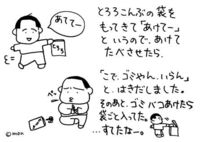 あけてー
とろろ
とろろこんぶの袋を
もってきて「あけてー」
というので、あけて
たべさせたら、
「こで、ゴミやん、いらん」
と、はきだしました。
そのあと、ゴミバコあけたら
袋ごと入ってた。
…すてたなー。